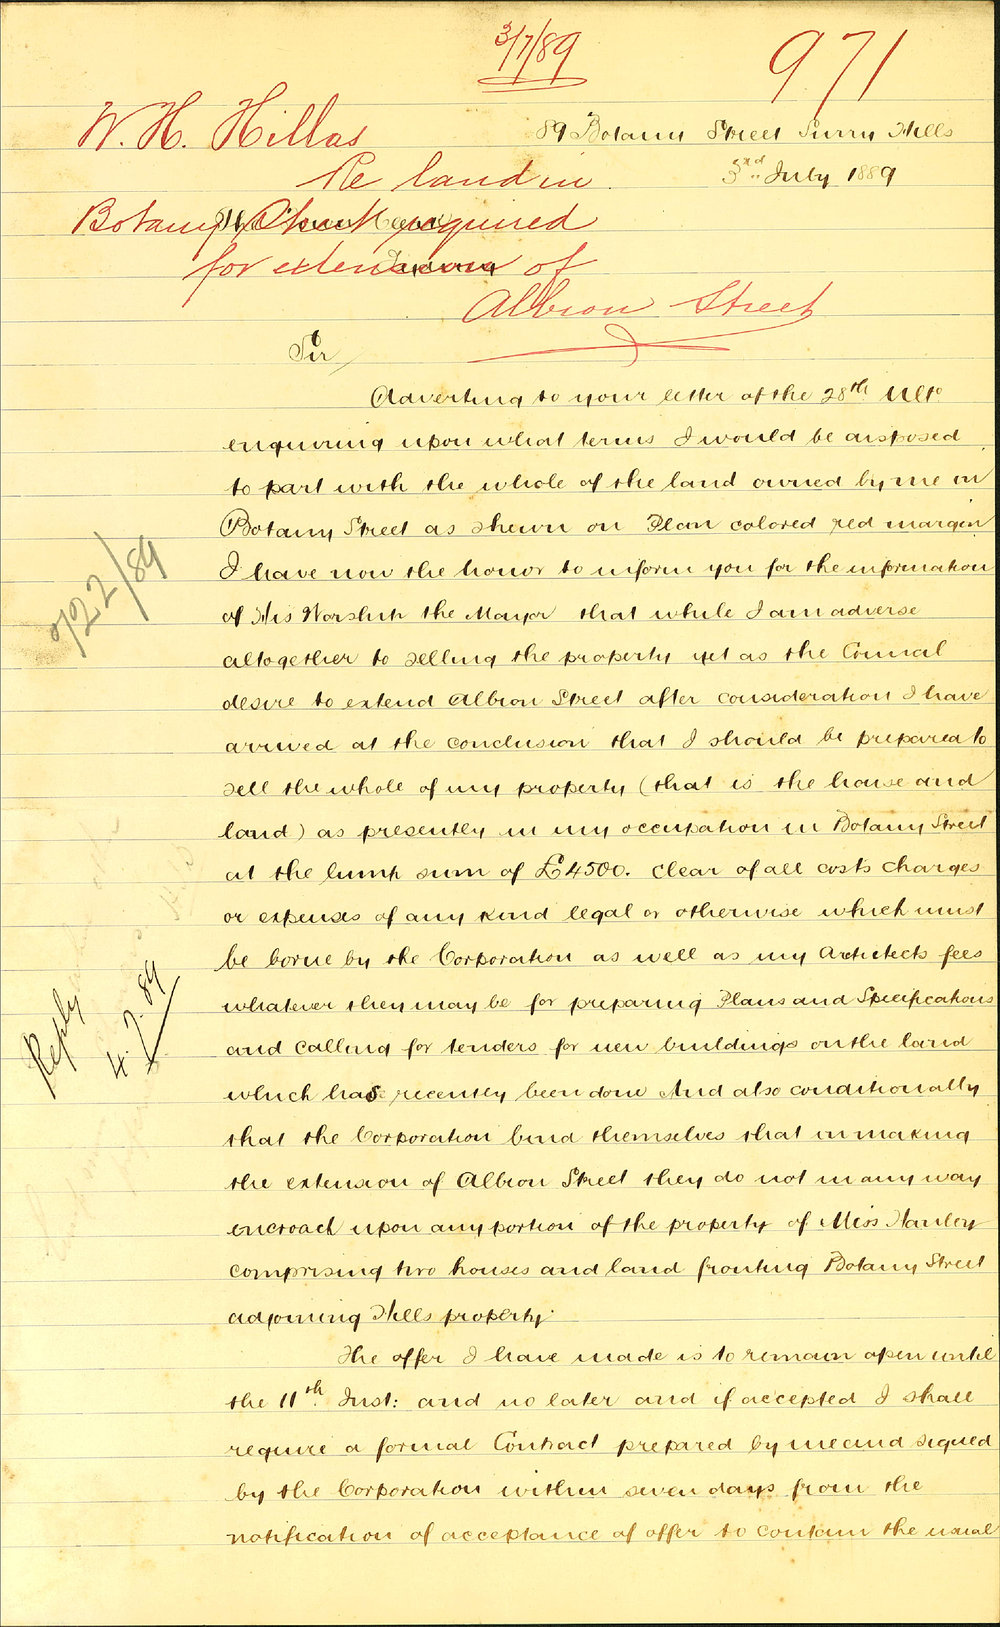 3/7/89
971
W. H. Hillas
Re land in
Botany Street required
for extension of
Albion Street
89 Botany Street Surry Hills
3rd July 1889
Sir
Adverting to your letter of the 28th Ulto
enquiring upon what terms I would be disposed
to part with the whole of the land owned by me in
Botany Street as shewn on Plan colored red margin
I have now the honor to inform you for the information
of His Worship the Mayor that while I am adverse
altogether to selling the property yet as the Council
desire to extend Albion Street after consideration I have
arrived at the conclusion that I should be prepared to
sell the whole of my property (that is the house and
land) as presently in my occupation in Botany Street
at the lump sum of £4500. clear of all costs charges
or expenses of any kind legal or otherwise which must
be borne by the Corporation as well as my Architects fees
whatever they may be for preparing Plans and Specifications
and calling for tenders for new buildings on the land
which has recently been done And also conditionally
that the Corporation bind themselves that in making
the extension of Albion Street they do not in any way
encroach upon any portion of the property of Miss Hanley
comprising two houses and land fronting Botany Street
adjoining Hills property.
The offer I have made is to remain open until
the 11th Inst: and no later and if accepted I shall
require a formal Contract prepared by me and signed
by the Corporation within seven days from the
notification of acceptance of offer to contain the usual
722/89
Reply
4.7.89